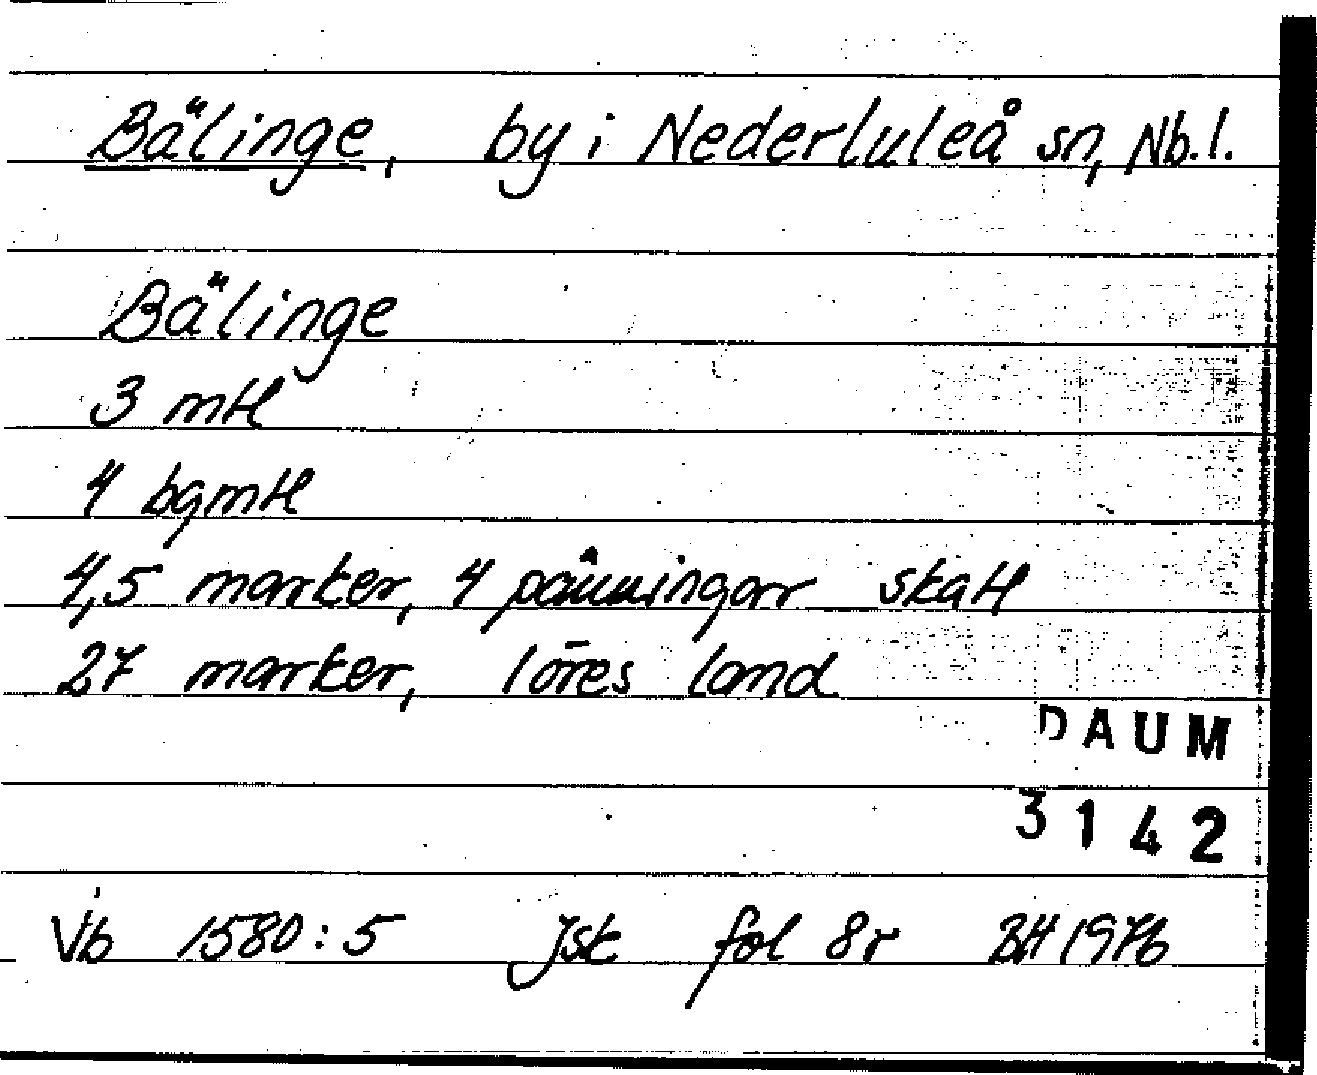 Bälinge, by i Nederluleå sn, Nb.l.
Bälinge
3 mtl
4 bgmtl
4,5 marker, 4 pänningar skatt
27 marker, 1öres land
DAUM
3142
Vb 1580:5 Jsk fol 8r BH 1976